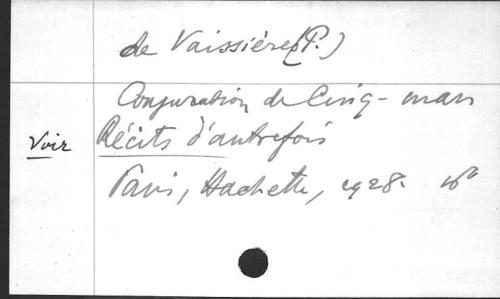 de Vaissière (P.)
Conjuration de Cinq-mars
Voir Récits d'autrefois
Paris, Hachette, 1928. 16°